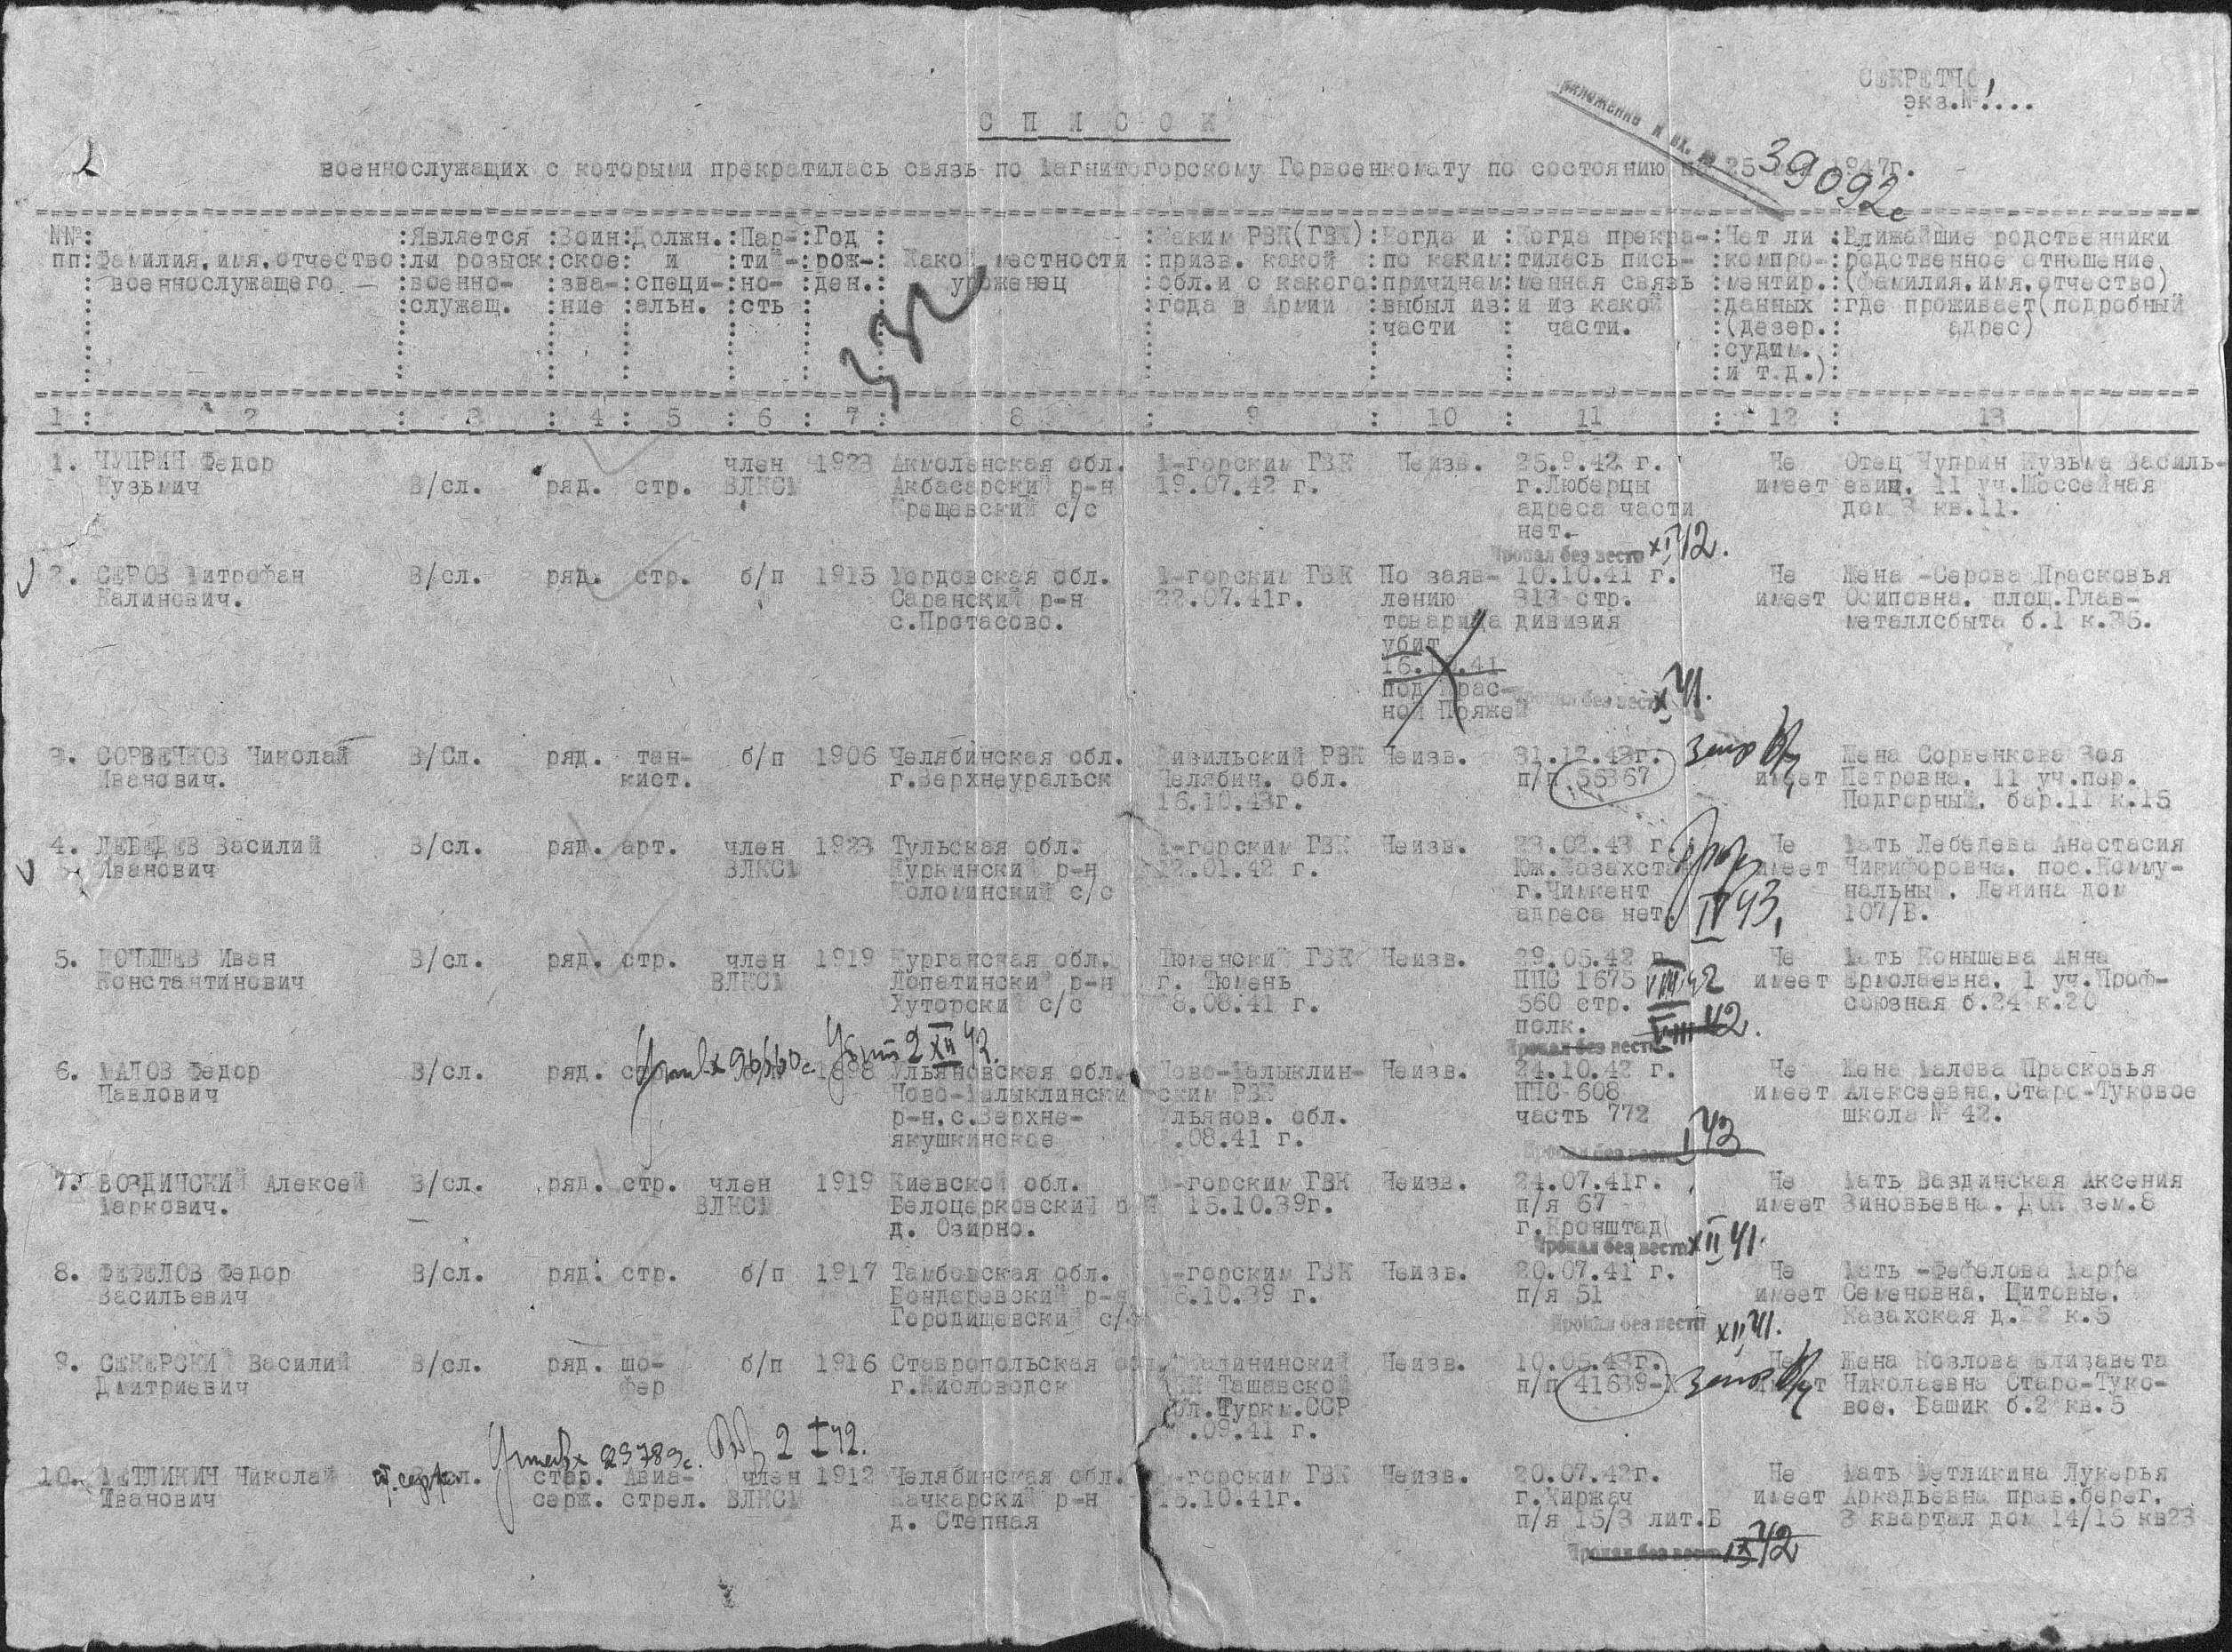 СЕКРЕТНО
экз.№ 1....
Приложение к вх. № 39092с
С П И С О К
2
военнослужащих с которыми прекратилась связь по Магнитогорскому Горвоенкомату по состоянию на 25 1947г.
№№: :Является :Воин:Должн.:Пар-:Год : :Каким РВК(ГВК):Когда и :Когда прекра-:Нет ли :Ближайшие родственники
пп:Фамилия,имя,отчество:ли розыск:ское: и :ти -:рож-: Какой местности :призв. какой :по каким:тилась пись- :компро-:родственное отношение
: военнослужащего :военно- :зва-:специ-:но- :ден.: уроженец :обл.и с какого:причинам:менная связь :ментир.:(фамилия,имя,отчество)
:служащ. :ние :альн. :сть : :года в Армии :выбыл из:и из какой :данных :где проживает(подробный
:части : части. :(дезер.: адрес)
:судим. :
:и т.д.):
332
1 : 2 : 3 : 4 : 5 : 6 : 7 : 8 : 9 : 10 : 11 : 12 : 13
1. ЧУПРИН Федор член 1923 Акмоленская обл. М-горским ГВК Неизв. 25.9.42 г. Не Отец Чуприн Кузьма Василь-
Кузьмич В/сл. ряд. стр. ВЛКСМ Акбасарский р-н 19.07.42 г. г.Люберцы имеет евич, 11 уч.Шоссейная
Крещевский с/с адреса части дом 3 кв.11.
нет.-
Пропал без вести XI 42.
2. СЕРОВ Митрофан В/сл. ряд. стр. б/п 1915 Мордовская обл. М-горским ГВК По заяв- 10.10.41 г. Не Жена -Серова Прасковья
Калинович. Саранский р-н 22.07.41г. лению 313 стр. имеет Осиповна, площ.Глав-
с.Протасово. товарища дивизия металлсбыта б.1 к.35.
убит
16. .41
под Крас-
ной Пряжей Пропал без вести X 41.
3. СОРВЕНКОВ Николай В/Сл. ряд. тан- б/п 1906 Челябинская обл. Кизильский РВК Неизв. 31.12.43г. Жена Сорвенкова Зоя
Иванович. кист. г.Верхнеуральск Челябин. обл. п/п 55367 имеет Петровна, 11 уч.пер.
16.10.43г. Подгорный, бар.11 к.15
4. ЛЕБЕДЕВ Василий В/сл. ряд. арт. член 1923 Тульская обл. М-горским ГВК Неизв. 23.02.43 г. Не Мать Лебедева Анастасия
Иванович ВЛКСМ Куркинский р-н 12.01.42 г. Юж.Казахстан имеет Никифоровна, пос.Комму-
Коломинский с/с г.Чимкент нальный, Ленина дом
адреса нет. IV 43. 107/В.
5. КОНЫШЕВ Иван В/сл. ряд. стр. член 1919 Курганская обл. Тюменский ГВК Неизв. 29.05.42 г. Не Мать Конышева Анна
Константинович ВЛКСМ Лопатинский р-н г. Тюмень ППС 1675 VIII 42 имеет Ермолаевна, 1 уч.Проф-
Хуторский с/с 8.08.41 г. 560 стр. союзная б.24 к.20
полк. VIII 42.
Пропал без вести
Убит 2 XII 42.
6. МАЛОВ Федор В/сл. ряд. 1898 Ульяновская обл. Ново-Малыклин- Неизв. 24.10.42 г. Не Жена Малова Прасковья
Павлович Ново-Малыклинский ским РВК ППС 608 имеет Алексеевна,Старо-Туковое
р-н.с.Верхне- Ульянов. обл. часть 772 школа № 42.
якушкинское .08.41 г.
Пропал без вести I 43
7. ВОЗДИНСКИЙ Алексей В/сл. ряд. стр. член 1919 Киевской обл. М-горским ГВК Неизв. 24.07.41г. Не Мать Ваздинская Аксения
Маркович. ВЛКСМ Белоцерковский р-н 15.10.39г. п/я 67 имеет Зиновьевна. ДОК зем.8
д. Озирно. г.Кронштад
Пропал без вести XII 41.
8. ФЕФЕЛОВ Федор В/сл. ряд. стр. б/п 1917 Тамбовская обл. М-горским ГВК Неизв. 20.07.41 г. Не Мать -Фефелова Марфа
Васильевич Бондаревский р-н 6.10.39 г. п/я 51 имеет Семеновна, Щитовые,
Городищевский с/с Казахская д.22 к.5
Пропал без вести XII 41.
9. СЕКЕРСКИЙ Василий В/сл. ряд. шо- б/п 1916 Ставропольская обл. Калининский Неизв. 10.06.43г. Не Жена Козлова Елизавета
Дмитриевич фер г.Кисловодск РВК Ташавской п/п 41639- имеет Николаевна Старо-Туко-
обл.Туркм.ССР вое, Башик б.2 кв.5
.09.41 г.
23789с. 2 I 42.
10. МЕТЛИКИН Николай ст. серж. В/сл. стар. Авиа- член 1912 Челябинская обл. М-горским ГВК Неизв. 20.07.42г. Не Мать Метликина Лукерья
Иванович серж. стрел. ВЛКСМ Качкарский р-н 15.10.41г. г.Киржач имеет Аркадьевна прав.берег.
д. Степная п/я 15/3 лит.Б 3 квартал дом 14/15 кв23
Пропал без вести IX 42